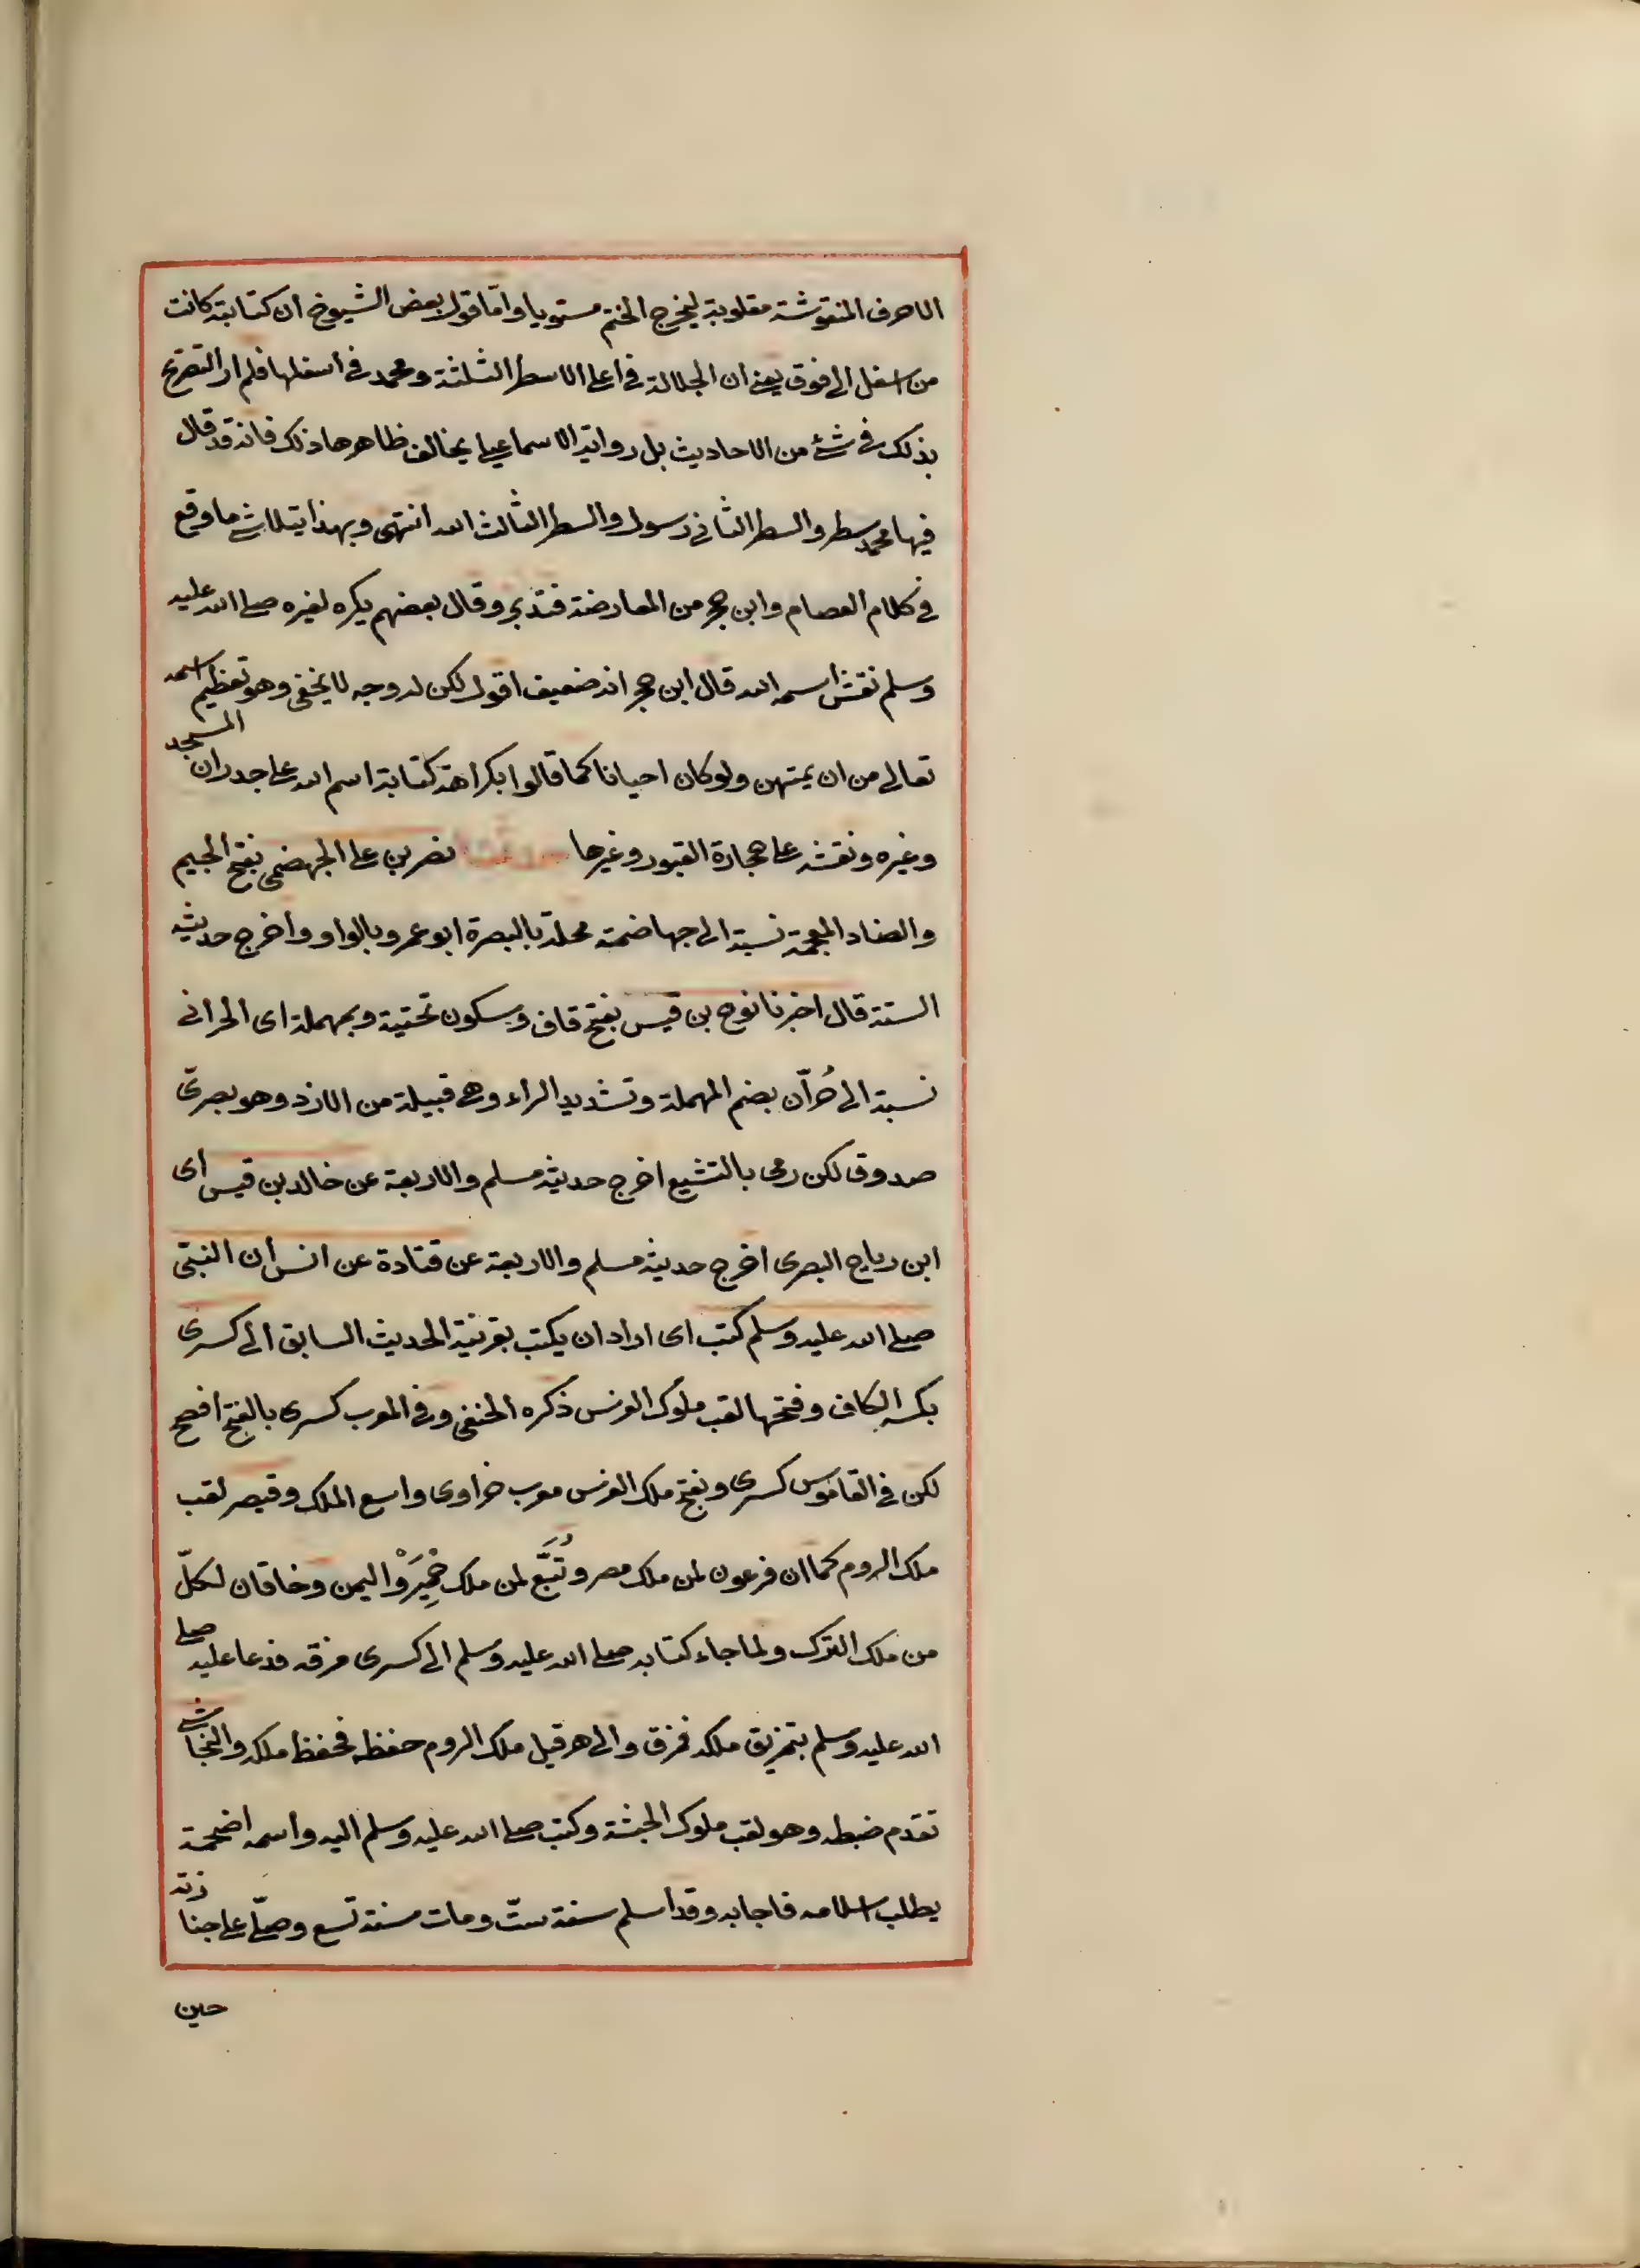 الاحرف المنقوشة مقلوبة ليخرج الختم مستويا واما قول بعض الشيوخ ان كتابته كانت
من اسفل الى فوق يعني ان الجلالة في اعلى الاسطر الثلثة ومحمد في اسفلها فلم ار التصريح
بذلك في شئ من الاحاديث بل رواية الاسماعيلي يخالف ظاهرها ذلك فانه قد قال
فيها محمد سطر والسطر الثاني رسول والسطر الثالث الله انتهى وبهذا يتلاشى ما وقع
في كلام العصام وابن حجر من المعارضة فتدبر وقال بعضهم يكره لغيره صلى الله عليه
وسلم نقش اسم الله قال ابن حجر انه ضعيف اقول لكن له وجه لا يخفى وهو تعظيم اسمه
تعالى من ان يمتهن ولو كان احيانا كما قالوا بكراهة كتابة اسم الله على جدران المسجد
وغيره ونقشه على حجارة القبور وغيرها حدثنا نصر بن على الجهضمي بفتح الجيم
والضاد المعجمة نسبة الى جهاضمة محلة بالبصرة ابو عمرو بالواو واخرج حديثه
الستة قال اخبرنا نوح بن قيس بفتح قاف وسكون تحتية وبمهملة اى الحرانى
نسبة الى حُرّان بضم المهملة وتشديد الراء وهى قبيلة من الازد وهو بصرىّ
صدوق لكن رمى بالتشيع اخرج حديثه مسلم والاربعة عن خالد بن قيس أى
ابن رباح البصرى اخرج حديثه مسلم والاربعة عن قتادة عن انس أن النبىّ
صلى الله عليه وسلم كتب اى اراد ان يكتب بقرينة الحديث السابق الى كسرى
بكسر الكاف وفتحها لقب ملوك الفرس ذكره الحنفى وفى المغرب كسرى بالفتح افصح
لكن فى القاموس كسرى ويفتح ملك الفرس معرب خراوى واسع الملك وقيصر لقب
ملك الروم كما ان فرعون لمن ملك مصر وتُبَّع لمن ملك حِمِيَرْ واليمن وخاقان لكلّ
من ملك الترك ولما جاء كتابه صلى الله عليه وسلم الى كسرى مزقه فدعا عليه صلى
الله عليه وسلم بتمزيق ملكه فمزق والى هرقيل ملك الروم حفظه فحفظ ملكه والنجاشى
تقدم ضبطه وهو لقب ملوك الحبشة وكتب صلى الله عليه وسلم اليه واسمه اضحمة
يطلب اسلامه فاجابه وقد أسلم سنة ستّ ومات سنة تسع وصلّى على جنازته
حين